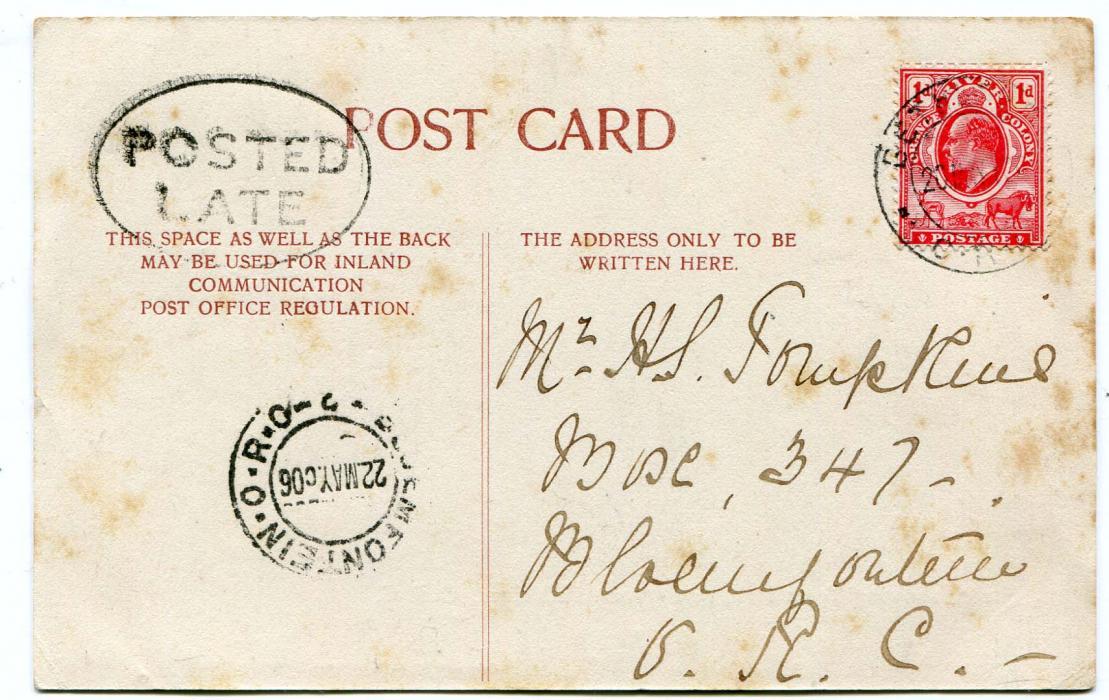 POSTED
LATE
POST CARD
1d RIVER 1d
ORANGE COLONY
POSTAGE
THIS SPACE AS WELL AS THE BACK
MAY BE USED FOR INLAND
COMMUNICATION
POST OFFICE REGULATION.
THE ADDRESS ONLY TO BE
WRITTEN HERE.
Mr. H.S. Tompkins
Box, 347-.
Bloemfontein
O. R. C. –
BLOEMFONTEIN·O·R·C
22 MAY 06